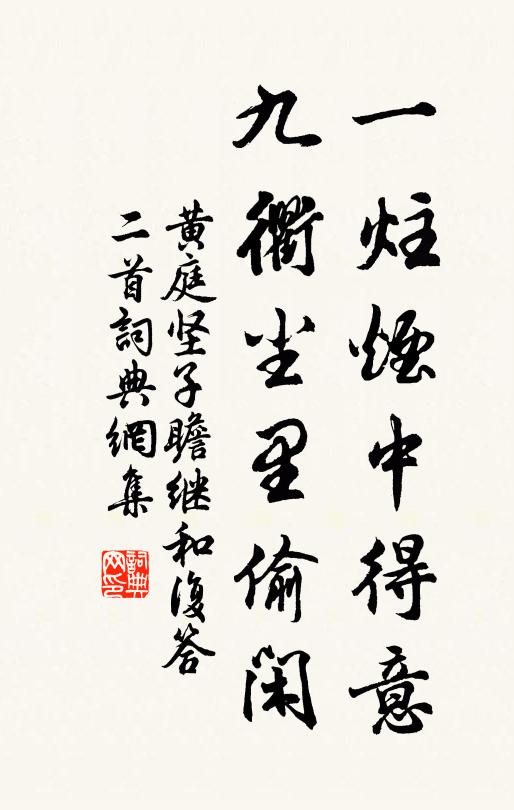 一炷煙中得意
九衢尘里偷闲
黄庭坚子瞻继和復答
二首詞典網集
詞典网印